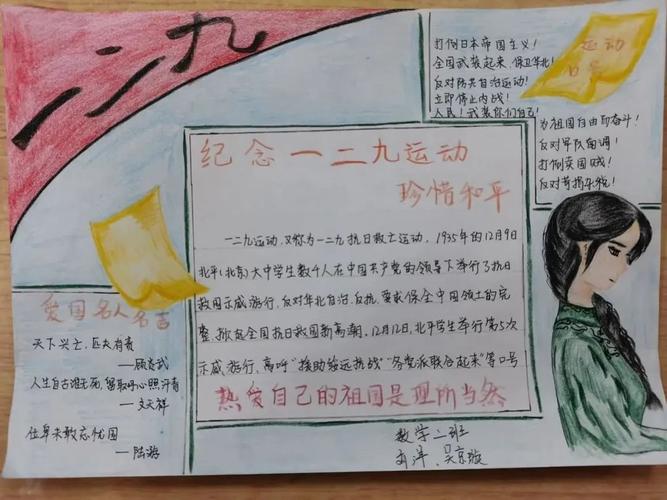 一二九
打倒日本帝国主义!
全国武装起来,保卫华北!
反对防共自治运动!
立即停止内战!
人民!武装你们自己!
运动
口号
为祖国自由而奋斗!
反对军队南调!
打倒卖国贼!
反对苛捐杂税!
纪念一二九运动
珍惜和平
一二九运动,又称为一二九抗日救亡运动,1935年的12月9日
北平(北京)大中学生数千人在中国共产党的领导下举行了抗日
救国示威游行,反对华北自治,反抗,要求保全中国领土的完
整,掀起全国抗日救国新高潮。12月12日,北平学生举行第5次
示威游行,高呼"援助绥远抗战""各党派联合起来"等口号
热爱自己的祖国是理所当然
爱国名人名言
天下兴亡,匹夫有责
——顾炎武
人生自古谁无死,留取丹心照汗青
——文天祥
位卑未敢忘忧国
——陆游
数学二班